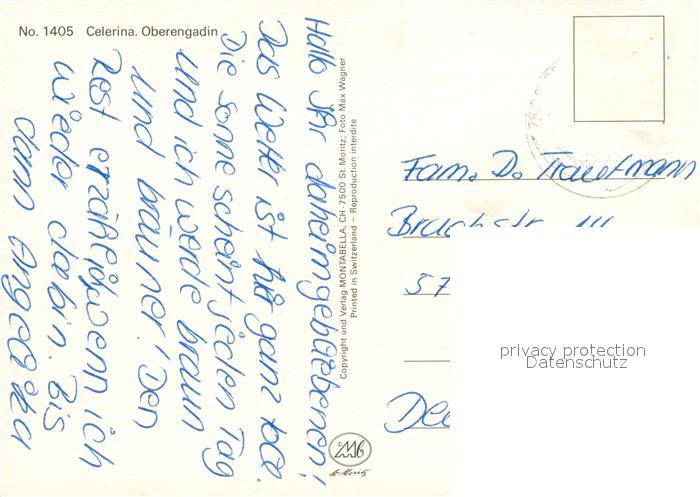 No. 1405 Celerina. Oberengadin
Hallo Ihr daheimgebliebenen!
Das Wetter ist hier ganz toll.
Die Sonne scheint jeden Tag
und ich werde braun
und bräuner! Den
Rest erzähl ich wenn ich
wieder da bin. Bis
dann Angelika
Copyright und Verlag MONTABELLA, CH-7500 St. Moritz; Foto Max Wagner
Printed in Switzerland – Reproduction interdite
St. Moritz
Fam. D. Trautmann
Bruchstr.
57
privacy protection
Datenschutz